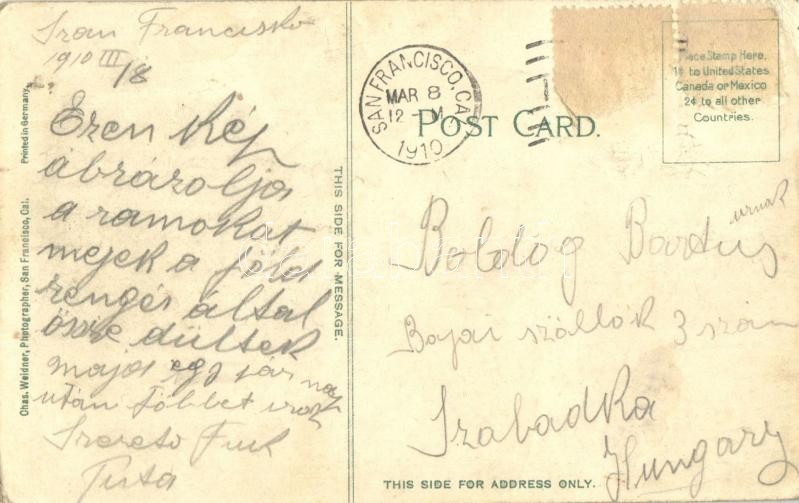 Sran Francisko
1910 III
/8
Ezen kép
ábrázolja
a ramokat
mejek a föld
rengés által
össze dültek
majd egy pár nap
után többet irok
Szerető Fiuk
Pista
Printed in Germany.
Chas. Weidner, Photographer, San Francisco, Cal.
THIS SIDE FOR MESSAGE.
SAN FRANCISCO, CAL
MAR 8
12 - M
1910
POST CARD.
Place Stamp Here.
1¢ to United States
Canada or Mexico
2¢ to all other
Countries.
Boldog Bartus urnak
Bajai szállók 3 szám
Szabadka
Hungary
THIS SIDE FOR ADDRESS ONLY.